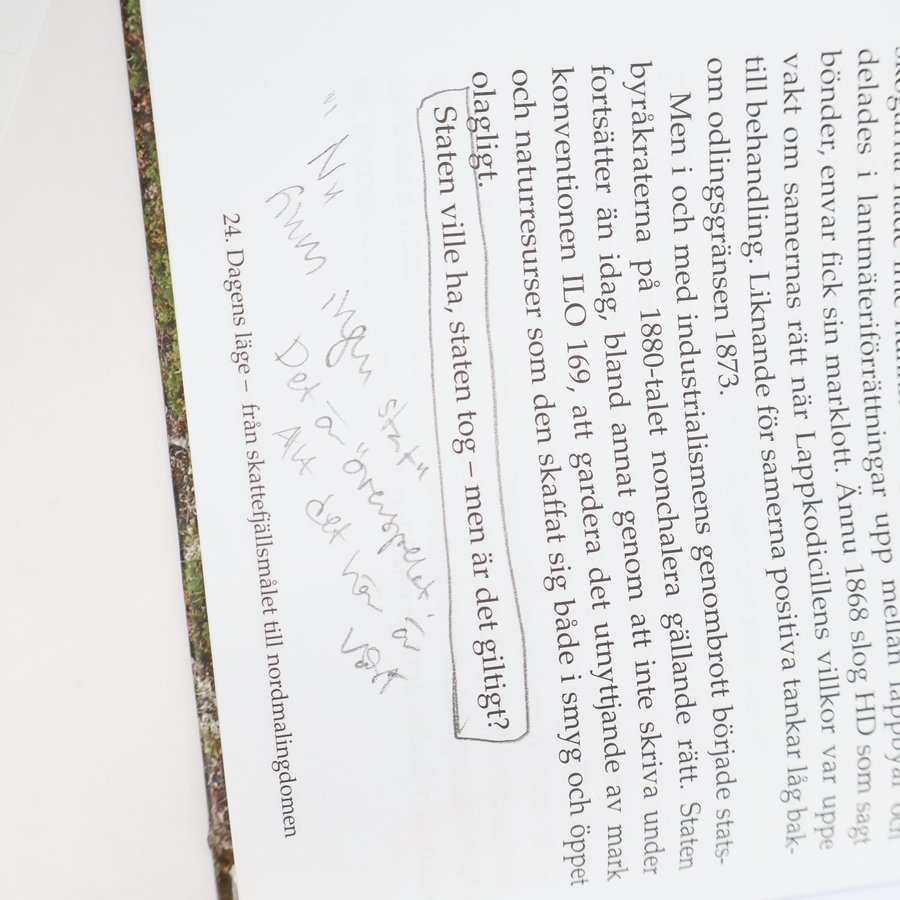 delades i lantmäteriförrättningar upp mellan lappbyar och
bönder, envar fick sin marklott. Ännu 1868 slog HD som sagt
vakt om samernas rätt när Lappkodicillens villkor var uppe
till behandling. Liknande för samerna positiva tankar låg bak-
om odlingsgränsen 1873.
Men i och med industrialismens genombrott började stats-
byråkraterna på 1880-talet nonchalera gällande rätt. Staten
fortsätter än idag, bland annat genom att inte skriva under
konventionen ILO 169, att gardera det utnyttjande av mark
och naturresurser som den skaffat sig både i smyg och öppet
olagligt.
Staten ville ha, staten tog – men är det giltigt?
"Nu
finns ingen stat"
Det är "överspelat" är
Allt det här är
vårt
24. Dagens läge – från skattefjällsmålet till nordmalingdomen